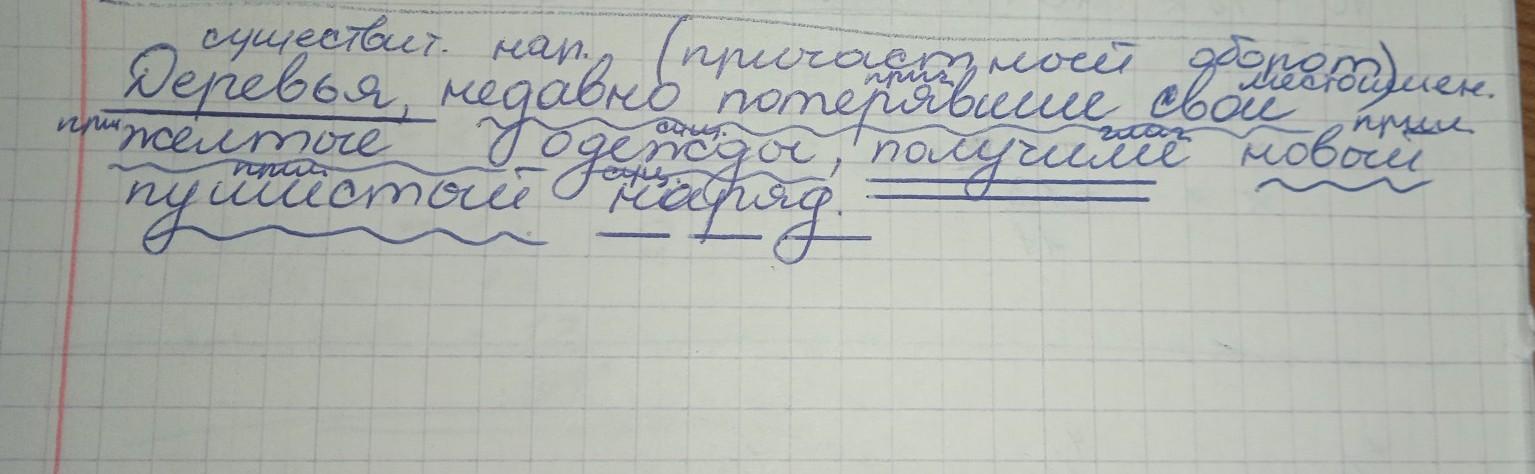 существит. нап. (причастной оборот)
прич местоимен.
Деревья, недавно потерявшие свои
прил сущ. глаг прил
желтые одежды, получили новый
прил сущ.
пушистый наряд.